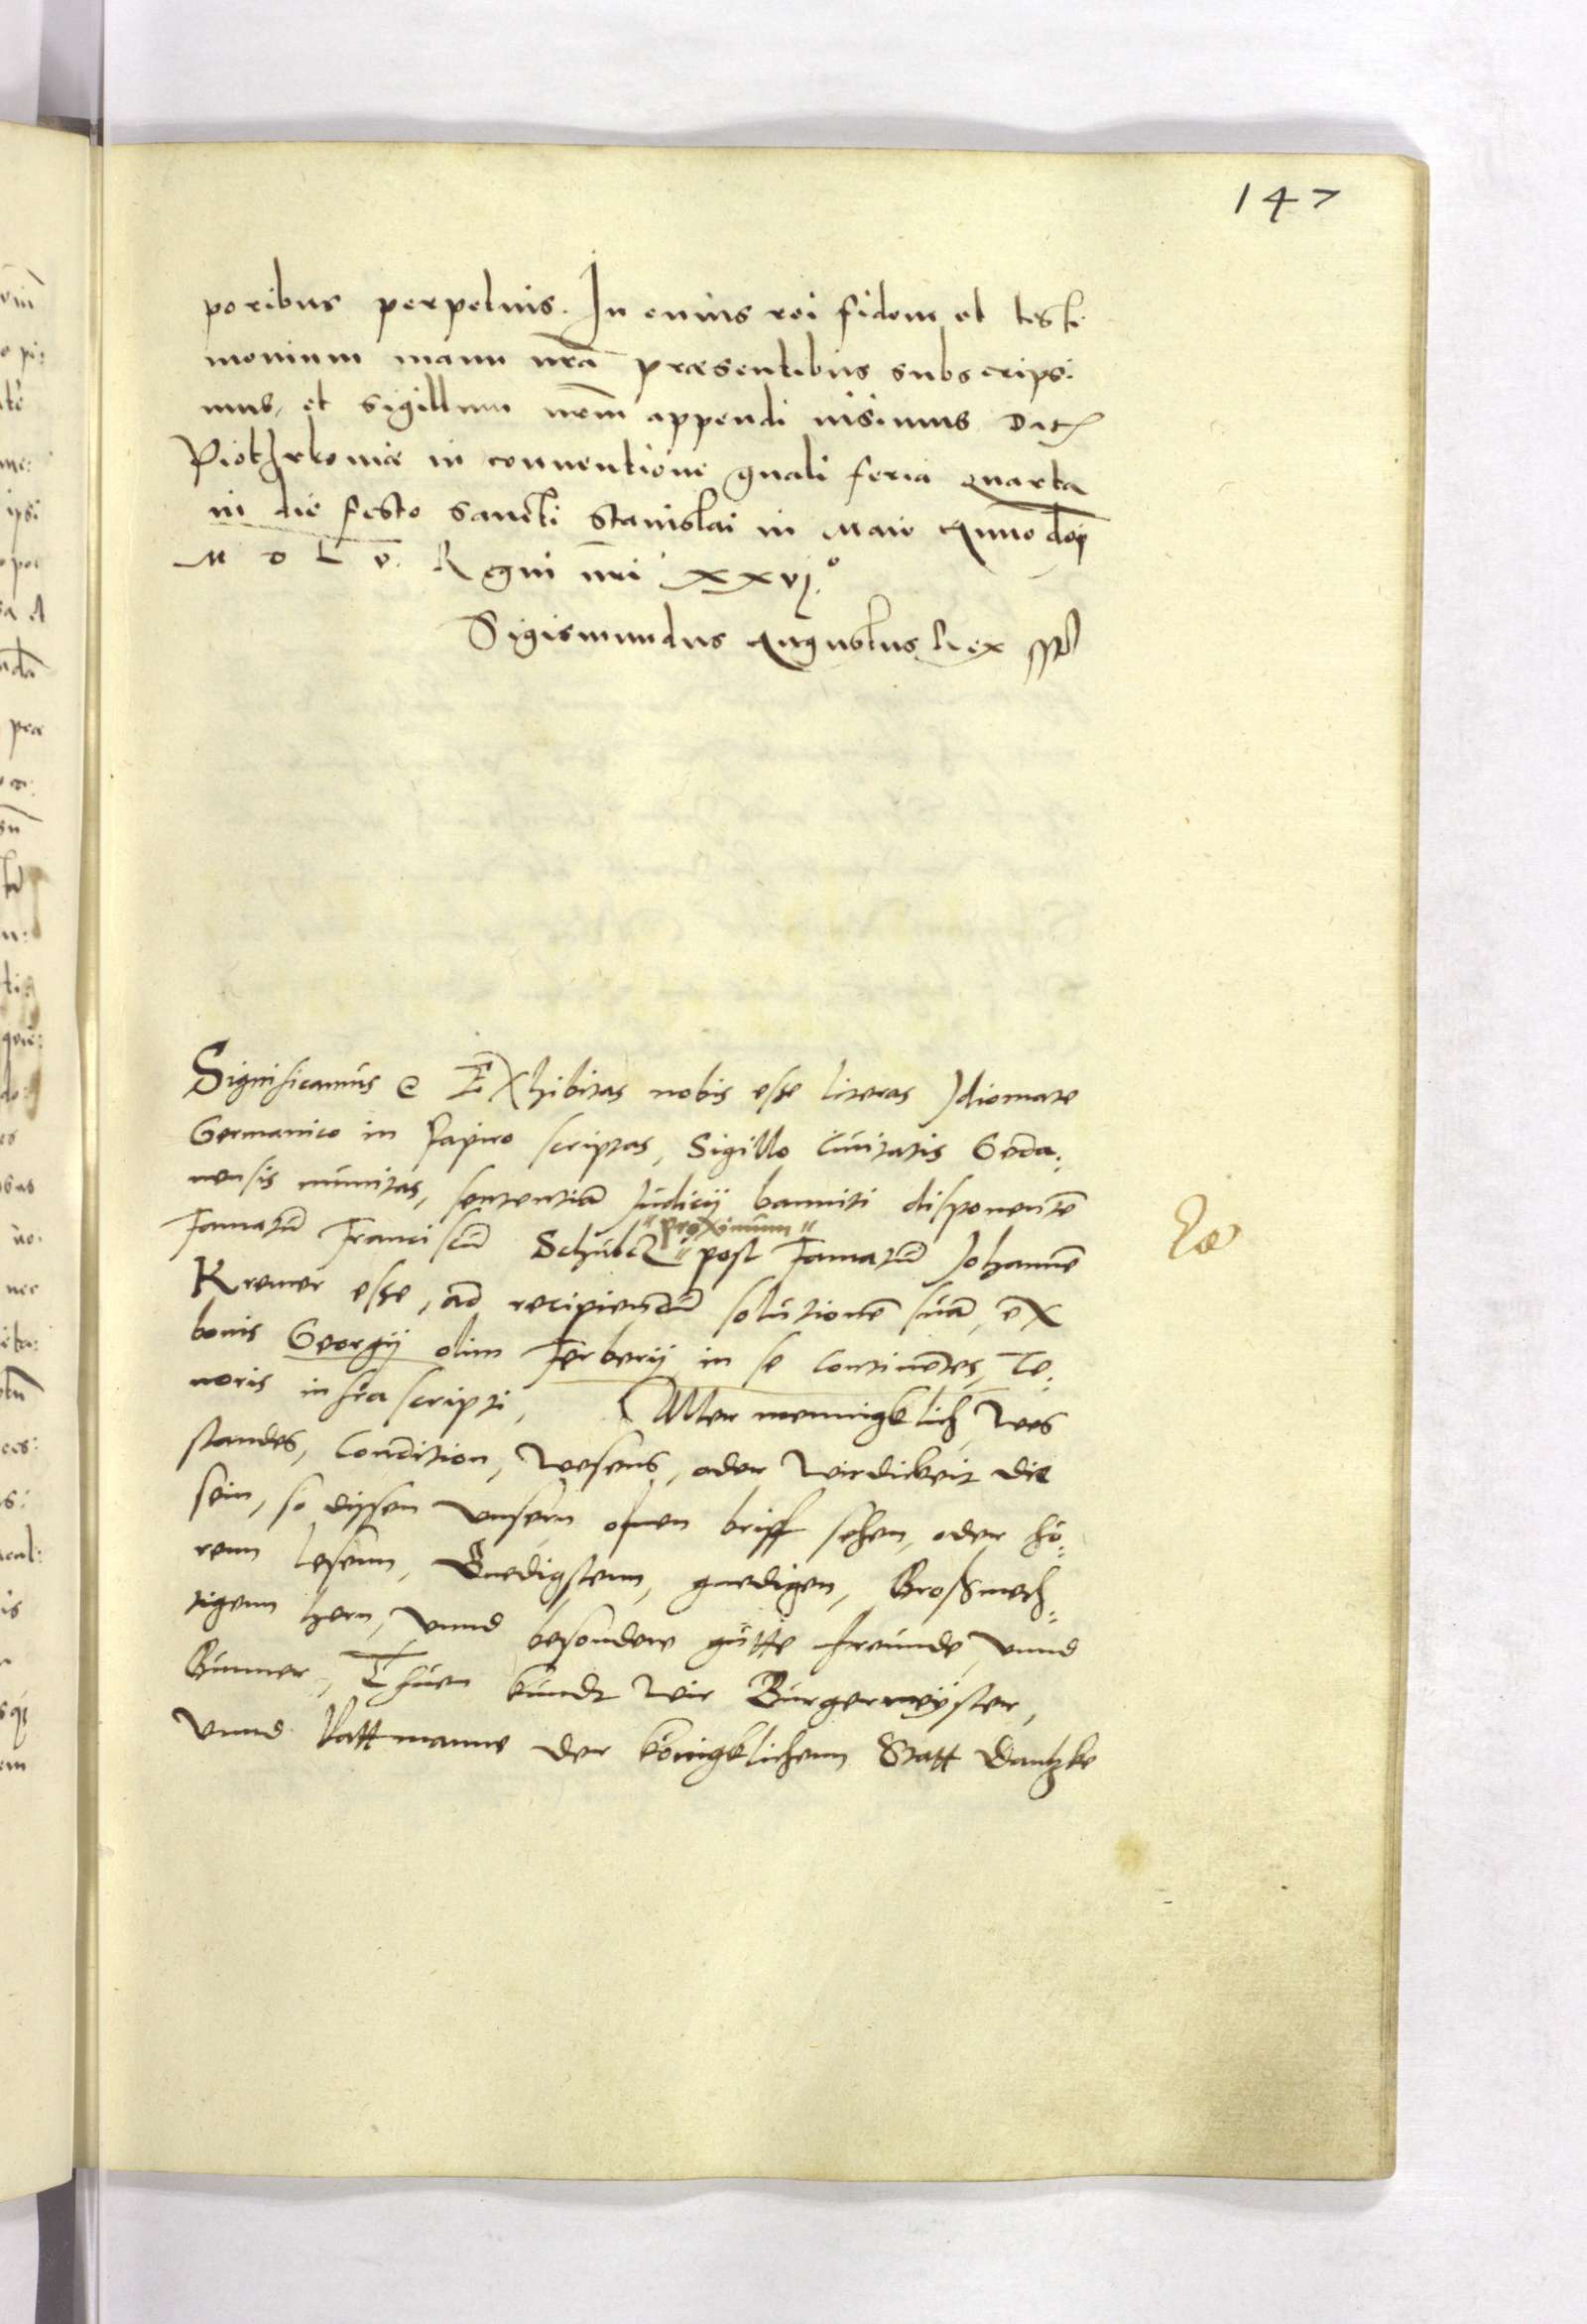 147
poribus perpetuis. In cuius rei fidem et testi
monium manu nrã præsentibus subscripsi
mus, et sigillum nrm̃ appendi iusimus Dat
Piotrkouiæ in conuentione gnali feria quarta
in die festo sancti Stanislai in Maio Anno doṁ
M D L v. Regni nri xxvj.º
Sigismundus Augustus Rex
Significamus &c Exhibitas nobis esse literas Idiomate
Germanico in Papiro scriptas, Sigillo Ciuitatis Geda:
nensis munitas, sententiã Iudicij banniti disponentẽ
Famatũ Franciscũ Schulcz "proximum" post Famatũ Johannẽ
Kremer esse, ad recipiendũ solutionẽ suã, ex
bonis Georgij olim Ferberij in se Continẽtes, Te:
noris infra scripti, Aller mennigklich, wes
standes, Condition, wesens, oder wirdickeit die
sein, so dissen vnsern offnen briff sehen, oder hö:
renn lesenn, Gnedigstenn, gnedigen, Großmech:
tigenn hern, vnnd besondere gutte freunde vnnd
Gunner, Thuen kundt wir Burgermeyster,
vnnd Rattmanne der königklichenn Statt Dantzke